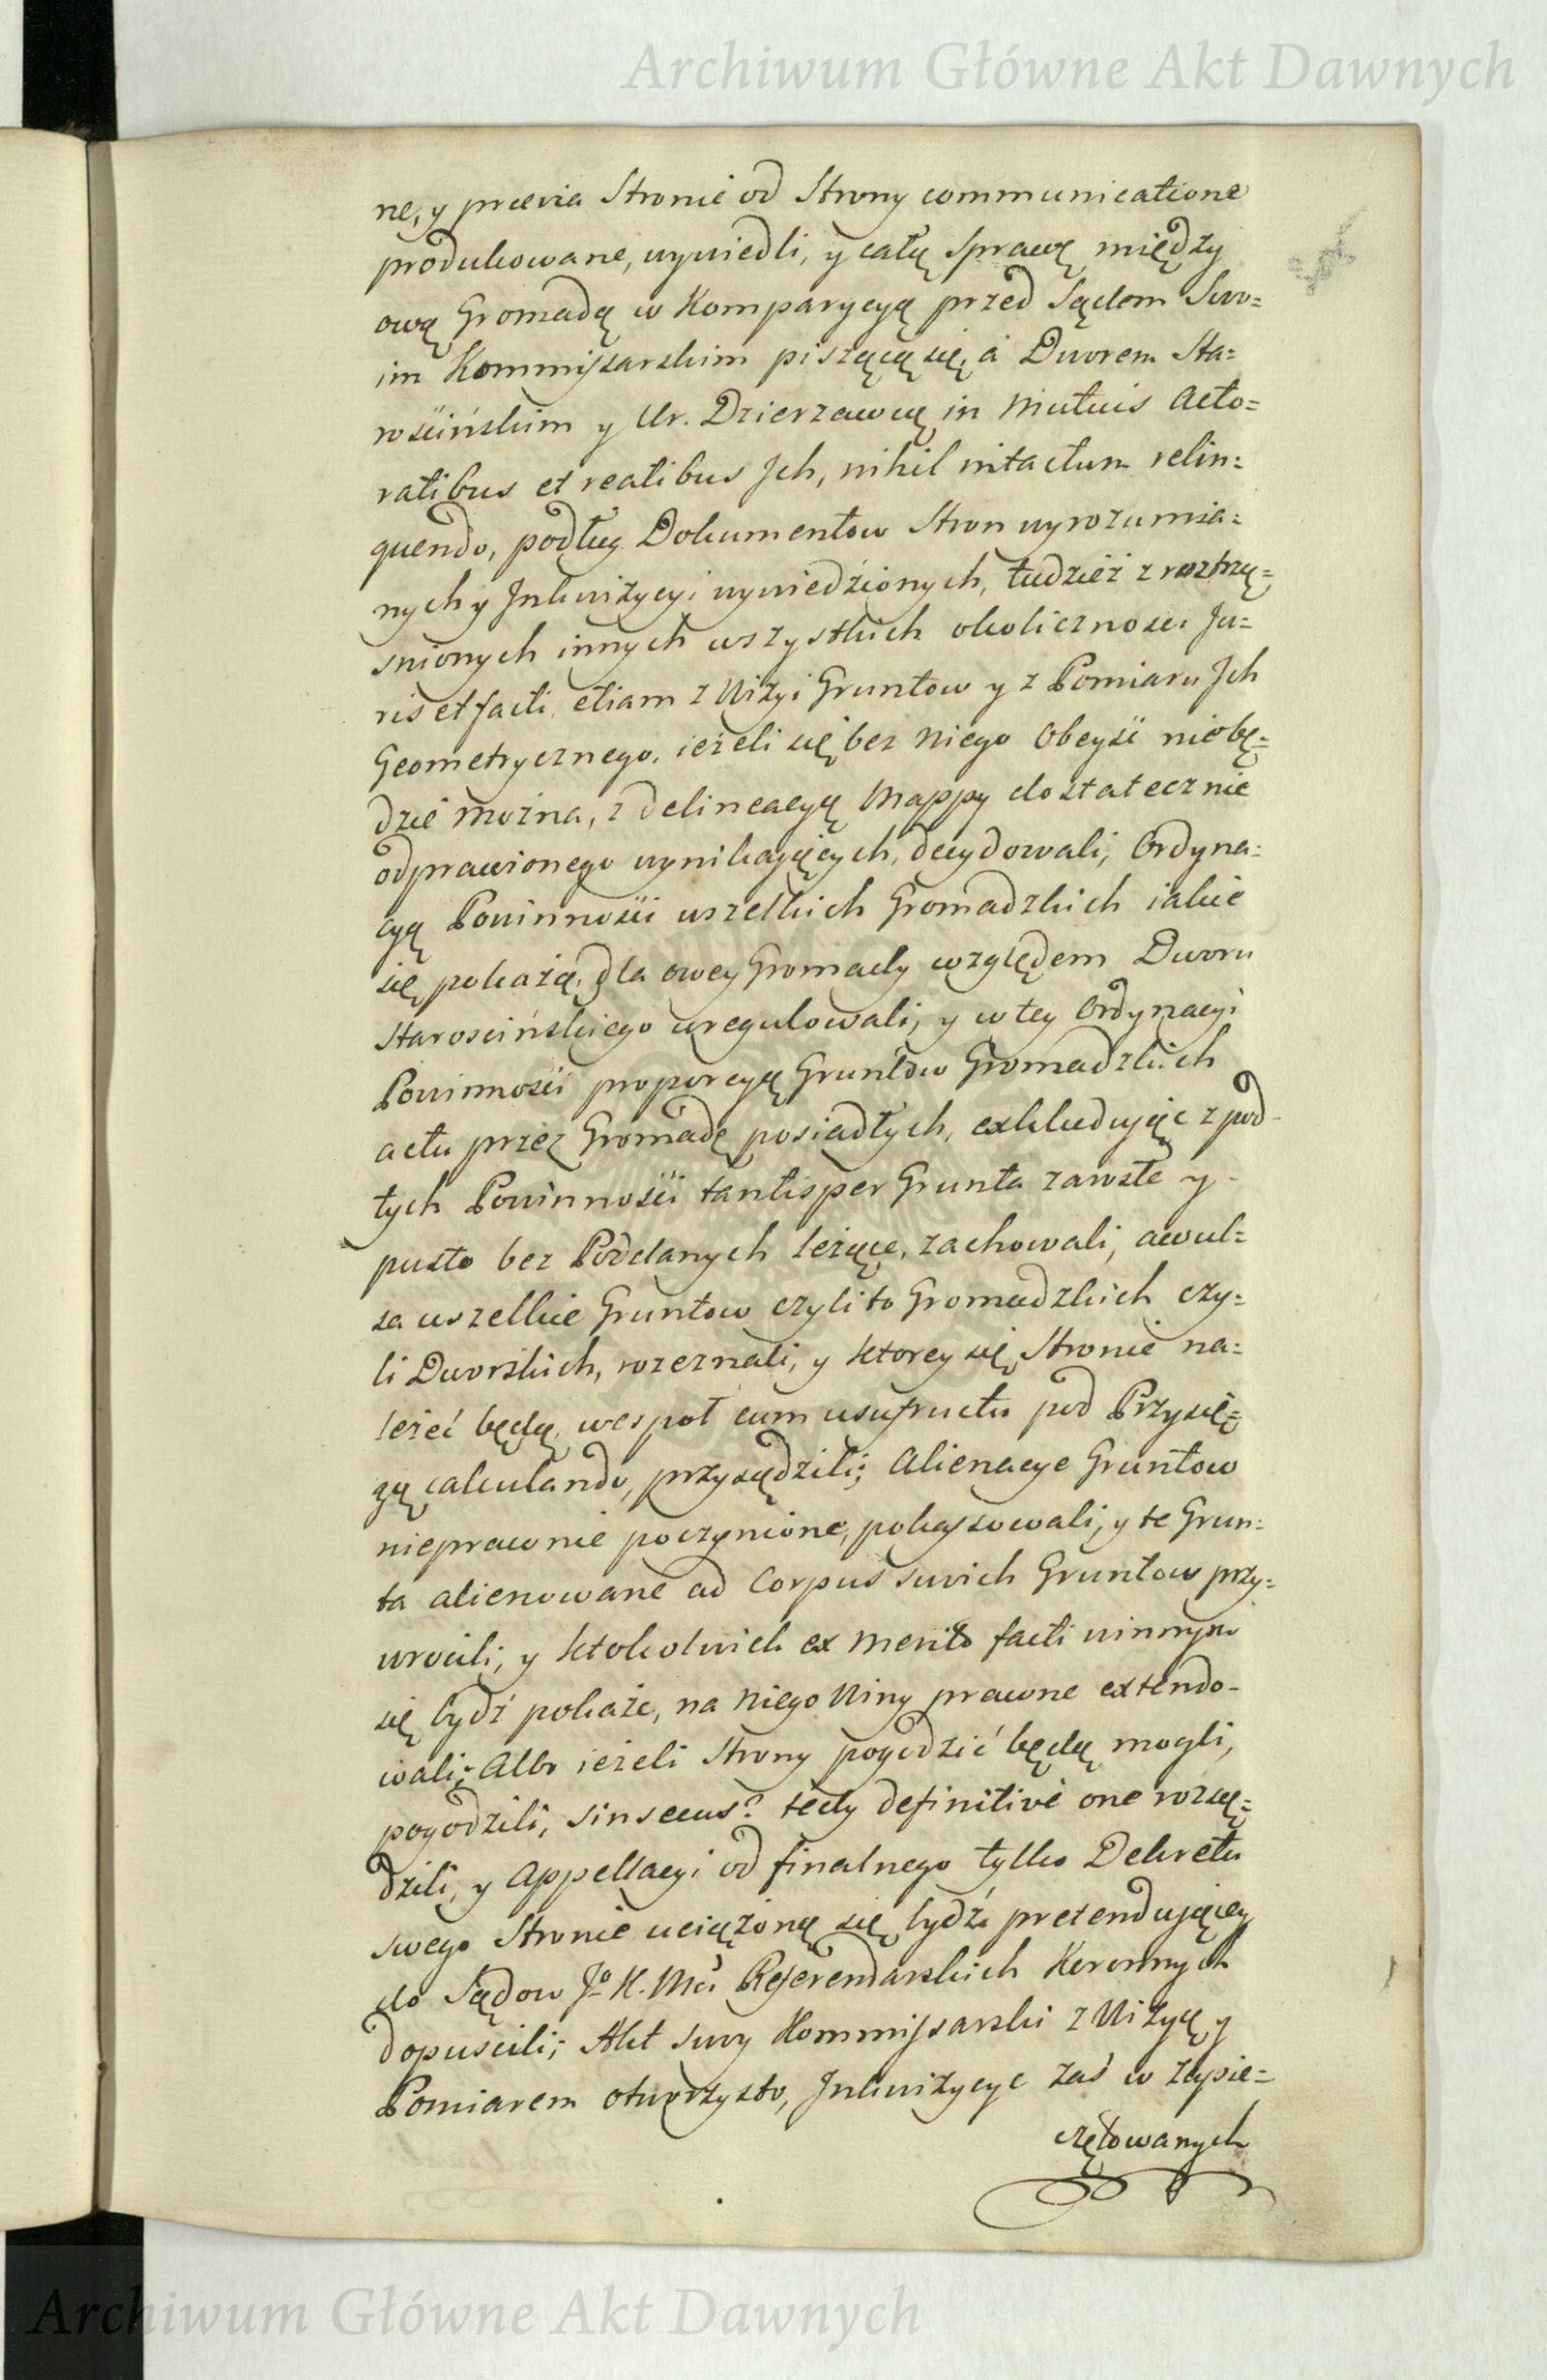 Archiwum Główne Akt Dawnych
ne, y prævia Stronie od Strony communicatione
produkowane, wywiedli, y całą Sprawę między
ową Gromadą w Komparycyą przed Sądem Swo=
im Kommissarskim piszącą się, a Dworem Sta=
rościńskim y Ur. Dzierzawcą in Mutuis Acto=
ratibus et reatibus Jch, nihil intactum relin=
quendo, podług Dokumentow Stron wyrozumia=
nych y Jnkwizycyi wywiedzionych, tudzież z roztrzą=
snionych innych wszystkich okolicznosci Ju=
ris et facti, etiam z Wizyi Gruntow y z Pomiaru Jch
Geometrycznego, ieżeli się bez niego Obeyść niebę=
dzie można, z delineacyą Mappy dostatecznie
odprawionego wynikających, decydowali, Ordyna=
cyą Powinności wszelkich Gromadzkich iakie
się pokażą, dla owey Gromady względem Dworu
Starościńskiego uregulowali, y w tey Ordynacyi
Powinności proporcyą Gruntów Gromadzkich
actu przez Gromadę posiadłych, exkludując z pod
tych Powinności tantisper Grunta zarosłe y
pusto bez Poddanych leżące, zachowali, awul=
sa wszelkie Gruntow czyli to Gromadzkich czy=
li Dworskich, rozeznali, y ktorey się Stronie na=
leżeć będą, wespoł cum usufructu pod Przysię=
gą calculando, przysądzili; Alienacye Gruntow
nieprawnie poczynione, pokassowali, y te Grun=
ta alienowane ad Corpus swich Gruntow przy=
wrocili, y ktokolwiek ex merito facti winnym
się bydź pokaże, na niego Winy prawne extendo-
wali; Albo ieżeli Strony pogodzić będą mogli,
pogodzili, sinsecus? tedy definitivè one rozsą=
dzili, y Appellacyi od finalnego tylko Dekretu
swego Stronie uciążoną się bydź pretendującey
do Sądow Jo K. Mci Referendarskich Koronnych
dopuscili; Akt swoy Kommissarski z Wizyą y
Pomiarem otworzysto, Jnkwizycye zaś w zapie=
czętowanych
Archiwum Główne Akt Dawnych